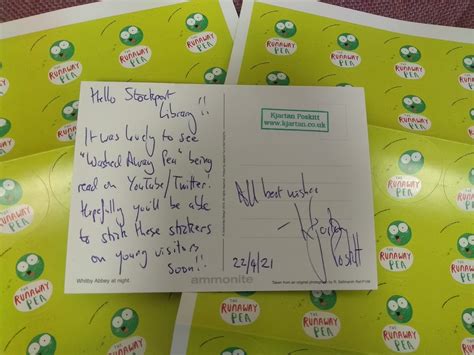 Hello Stockport
Library!!
It was lovely to see
"Washed Away Pea" being
read on YouTube/Twitter.
Hopefully you'll be able
to stick these stickers
on young visitors
soon!!
Whitby Abbey at night.
ammonite
Kjartan Poskitt
www.kjartan.co.uk
All best wishes
- Kjartan
Poskitt
22/4/21
THE
RUNAWAY
PEA
THE
RUNAWAY
PEA
THE
RUNAWAY
PEA
THE
RUNAWAY
PEA
THE
RUNAWAY
PEA
THE
RUNAWAY
PEA